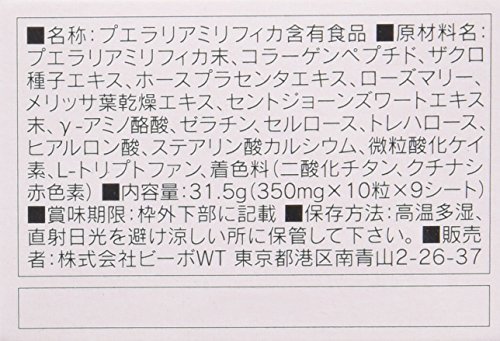 ■名称：プエラリアミリフィカ含有食品 ■原材料名：
プエラリアミリフィカ末、コラーゲンペプチド、ザクロ
種子エキス、ホースプラセンタエキス、ローズマリー、
メリッサ葉乾燥エキス、セントジョーンズワートエキス
末、γ-アミノ酪酸、ゼラチン、セルロース、トレハロース、
ヒアルロン酸、ステアリン酸カルシウム、微粒酸化ケイ
素、L-トリプトファン、着色料(二酸化チタン、クチナシ
赤色素) ■内容量：31.5g(350mg×10粒×9シート)
■賞味期限：枠外下部に記載 ■保存方法：高温多湿、
直射日光を避け涼しい所に保管して下さい。■販売
者：株式会社ビーポWT 東京都港区南青山2-26-37